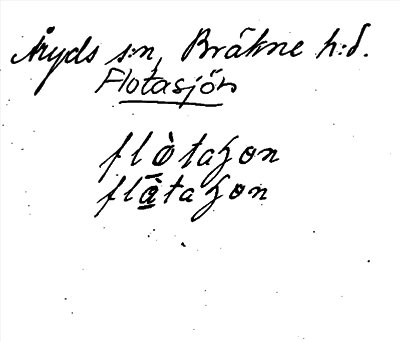 Åryds s:n, Bräkne h:d.
Flotasjön
flòtaʒon
flā̀taʒon